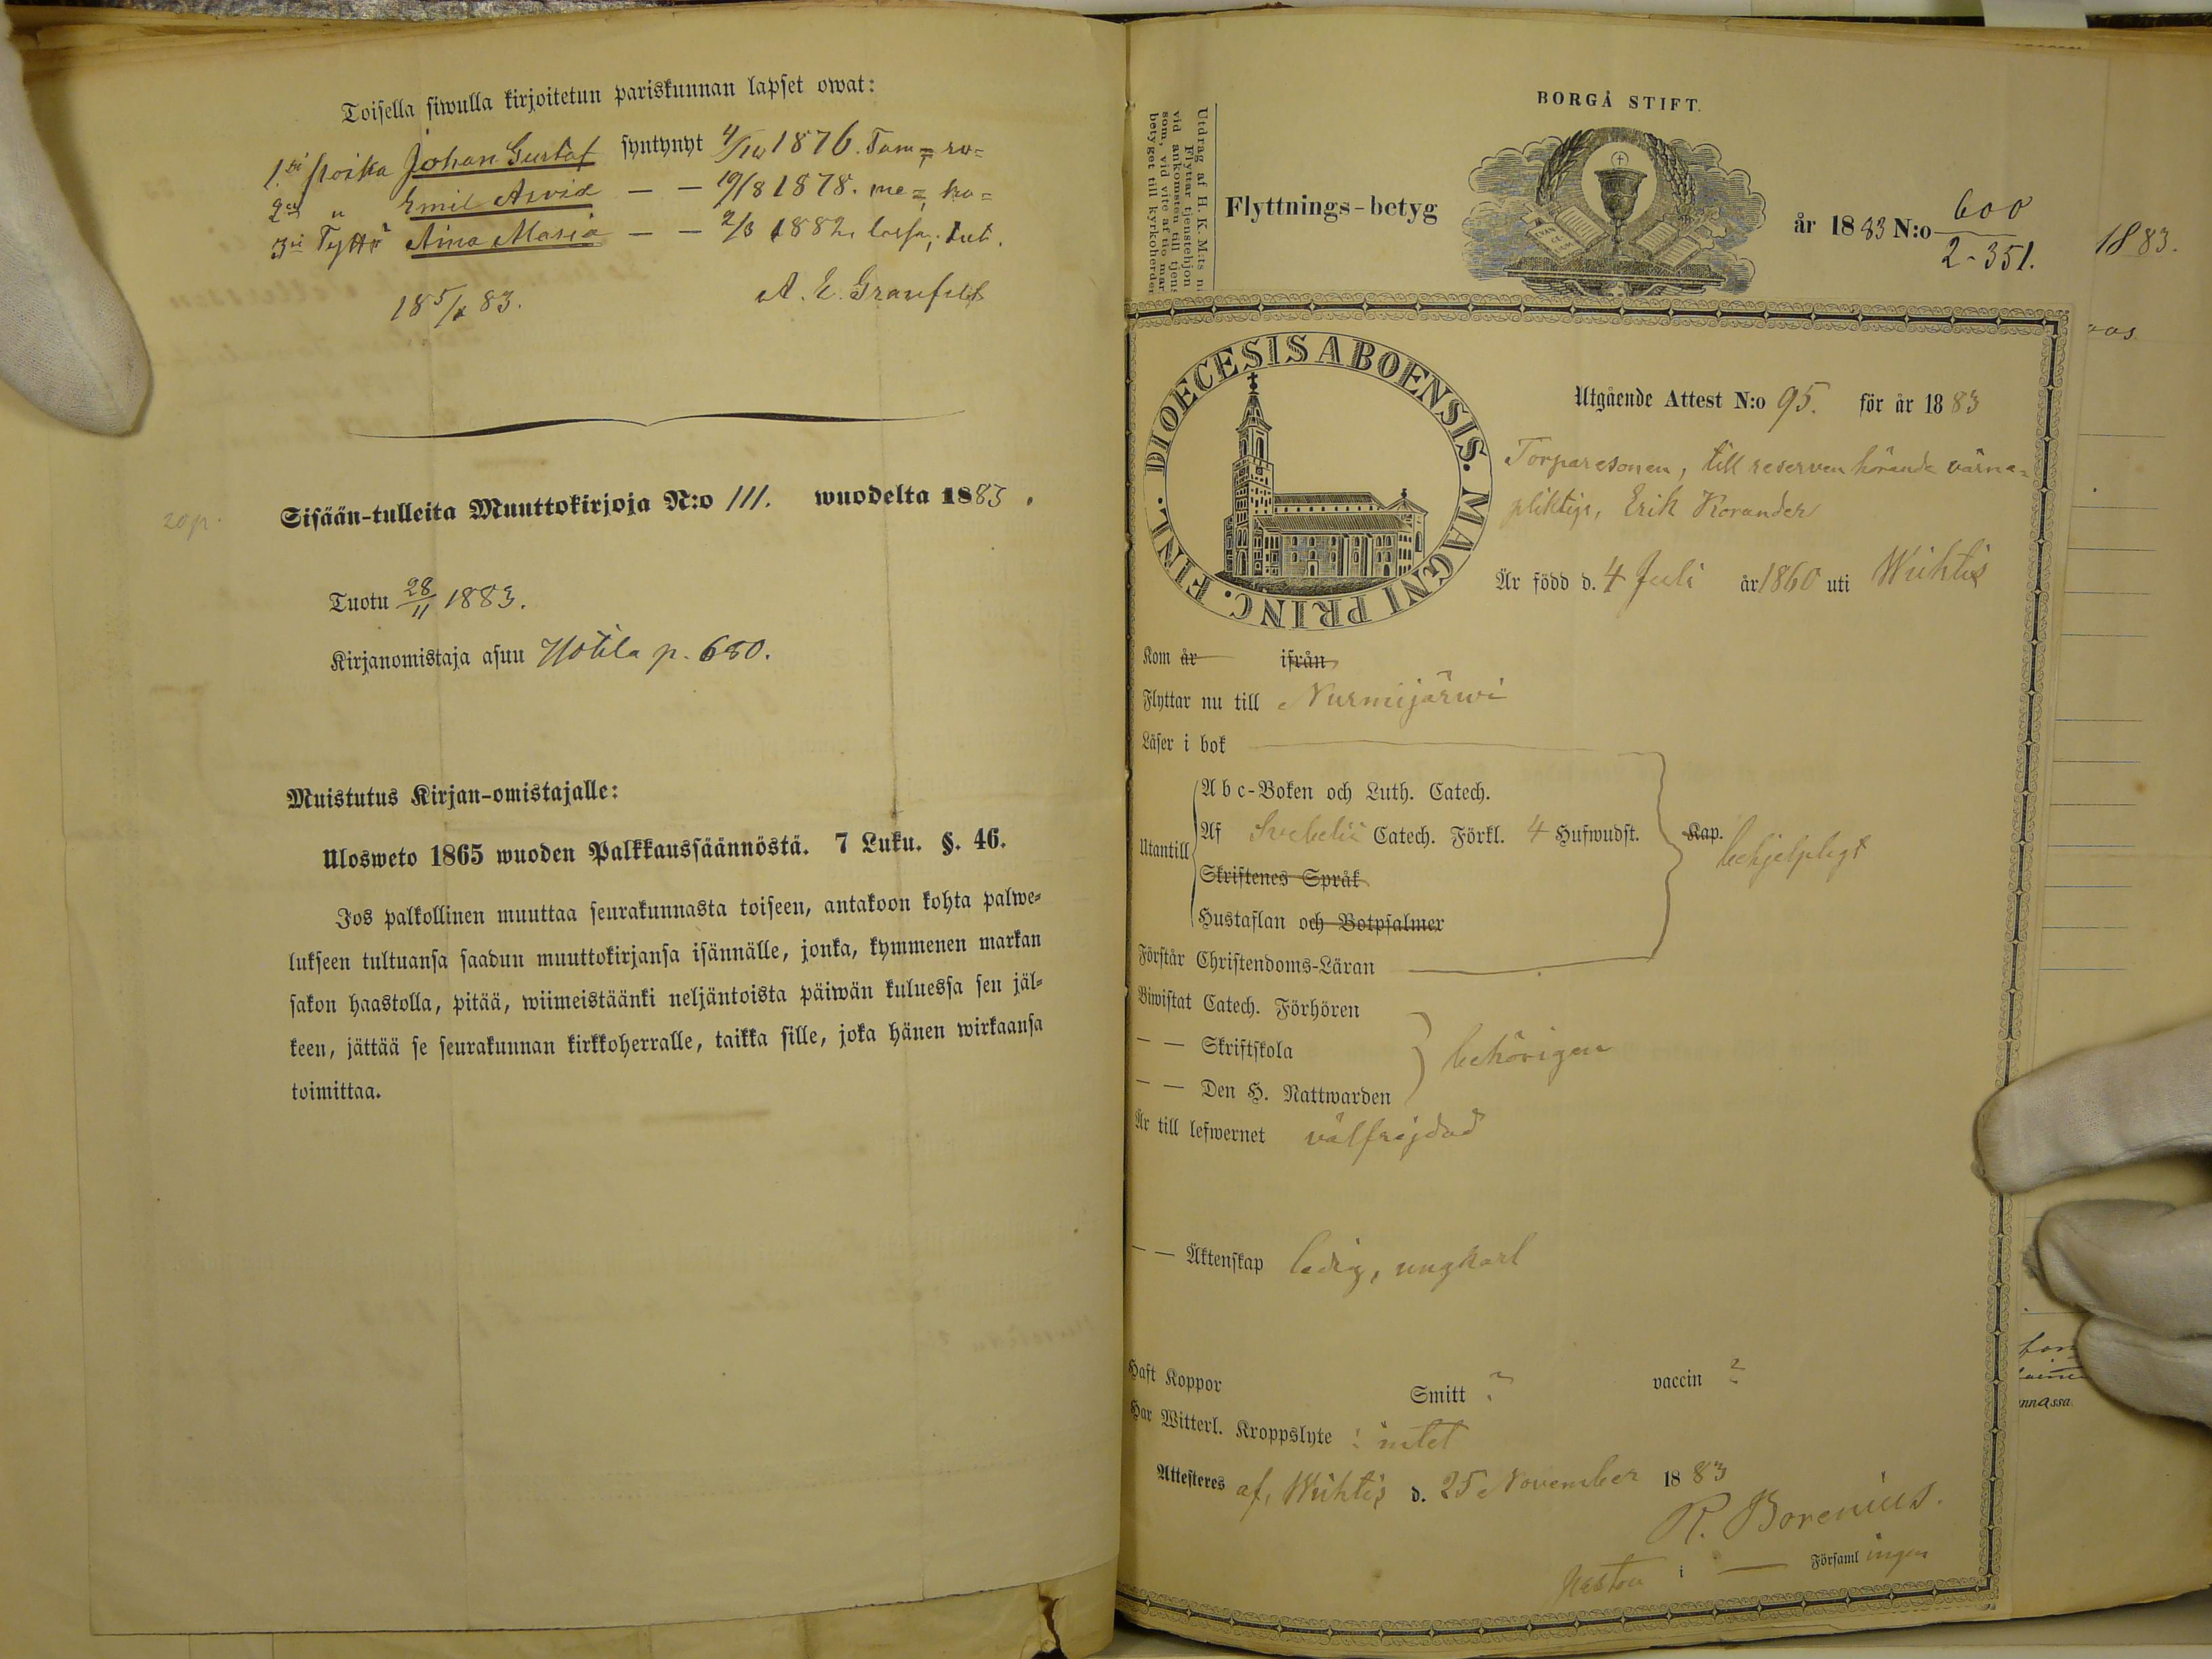 Toisella siwulla kirjoitetun pariskunnan lapset owat:
1.si poika Johan Gustaf syntynyt 4/10 1876. Tam= ro=
2en " Emil Arvid — — 19/8 1878. me= ko=
3si Tyttö Aina Maria — — 2/3 1882.
18 5/x 83. A. E. Granfelt
20 p.
Sisään-tulleita Muuttokirjoja N:o 111. wuodelta 1883.
Tuotu 28/11 1883.
Kirjanomistaja asuu p. 680.
Muistutus Kirjan-omistajalle:
Ulosweto 1865 wuoden Palkkaussäännöstä. 7 Luku. §. 46.
Jos palkollinen muuttaa seurakunnasta toiseen, antakoon kohta palwe=
lukseen tultuansa saadun muuttokirjansa isännälle, jonka, kymmenen markan
sakon haastolla, pitää, wiimeistäänki neljäntoista päiwän kuluessa sen jäl=
keen, jättää se seurakunnan kirkkoherralle, taikka sille, joka hänen wirkaansa
toimittaa.
BORGÅ STIFT.
Utdrag af H. K. M:ts n
Flyttar tjenstehjon
vid ankomsten till tjens
som, vid vite af tio mar
betyget till kyrkoherden
Flyttnings-betyg
år 1883 N:o 600
2-351.
1883.
DIOECESIS ABOENSIS. MAGNI PRINC. FINL.
Utgående Attest N:o 95. för år 1883
Torparesonen, till reserven hörande värne=
pliktige, Erik Korander
Är född d. 4 Juli år 1860 uti Wichtis
Kom år ifrån
Flyttar nu till Nurmijärwi
Läser i bok
Utantill
A b c-Boken och Luth. Catech.
Af Svebelii Catech. Förkl. 4 Hufwudst. Kap.
behjelpligt
Skriftenes Språk
Hustaflan och Botpsalmer
Förstår Christendoms-Läran
Biwistat Catech. Förhören
— — Skriftskola
behörigen
— — Den H. Nattwarden
Är till lefwernet välfrejdad
— — Äktenskap ledig, ungkarl
Haft Koppor Smitt ? vaccin ?
Har Witterl. Kroppslyte : intet
Attesteres af, Wichtis d. 25 November 1883
R. Borenius.
Pastor i — Församlingen
nnassa.